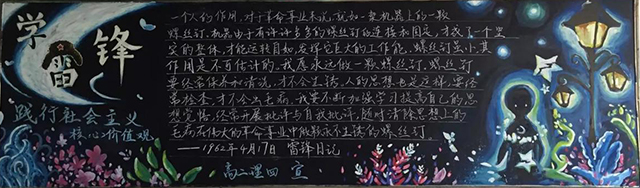 学雷锋
践行社会主义
核心价值观
一个人的作用，对于革命事业来说，就如一架机器上的一颗
螺丝钉。机器由于有许许多多的螺丝钉的连接和固定，才成了一个坚
实的整体，才能运转自如，发挥它巨大的工作能。螺丝钉虽小，其
作用是不可估计的。我愿永远做一颗螺丝钉。螺丝钉
要经常保养和清洗，才不会生锈。人的思想也是这样，要经
常检查，才不会出毛病。我要不断加强学习提高自己的思
想觉悟，经常开展批评与自我批评，随时清除思想上的
毛病在伟大的革命事业中做永不生锈的螺丝钉
——1962年4月17日 雷锋日记
高二理四 宣